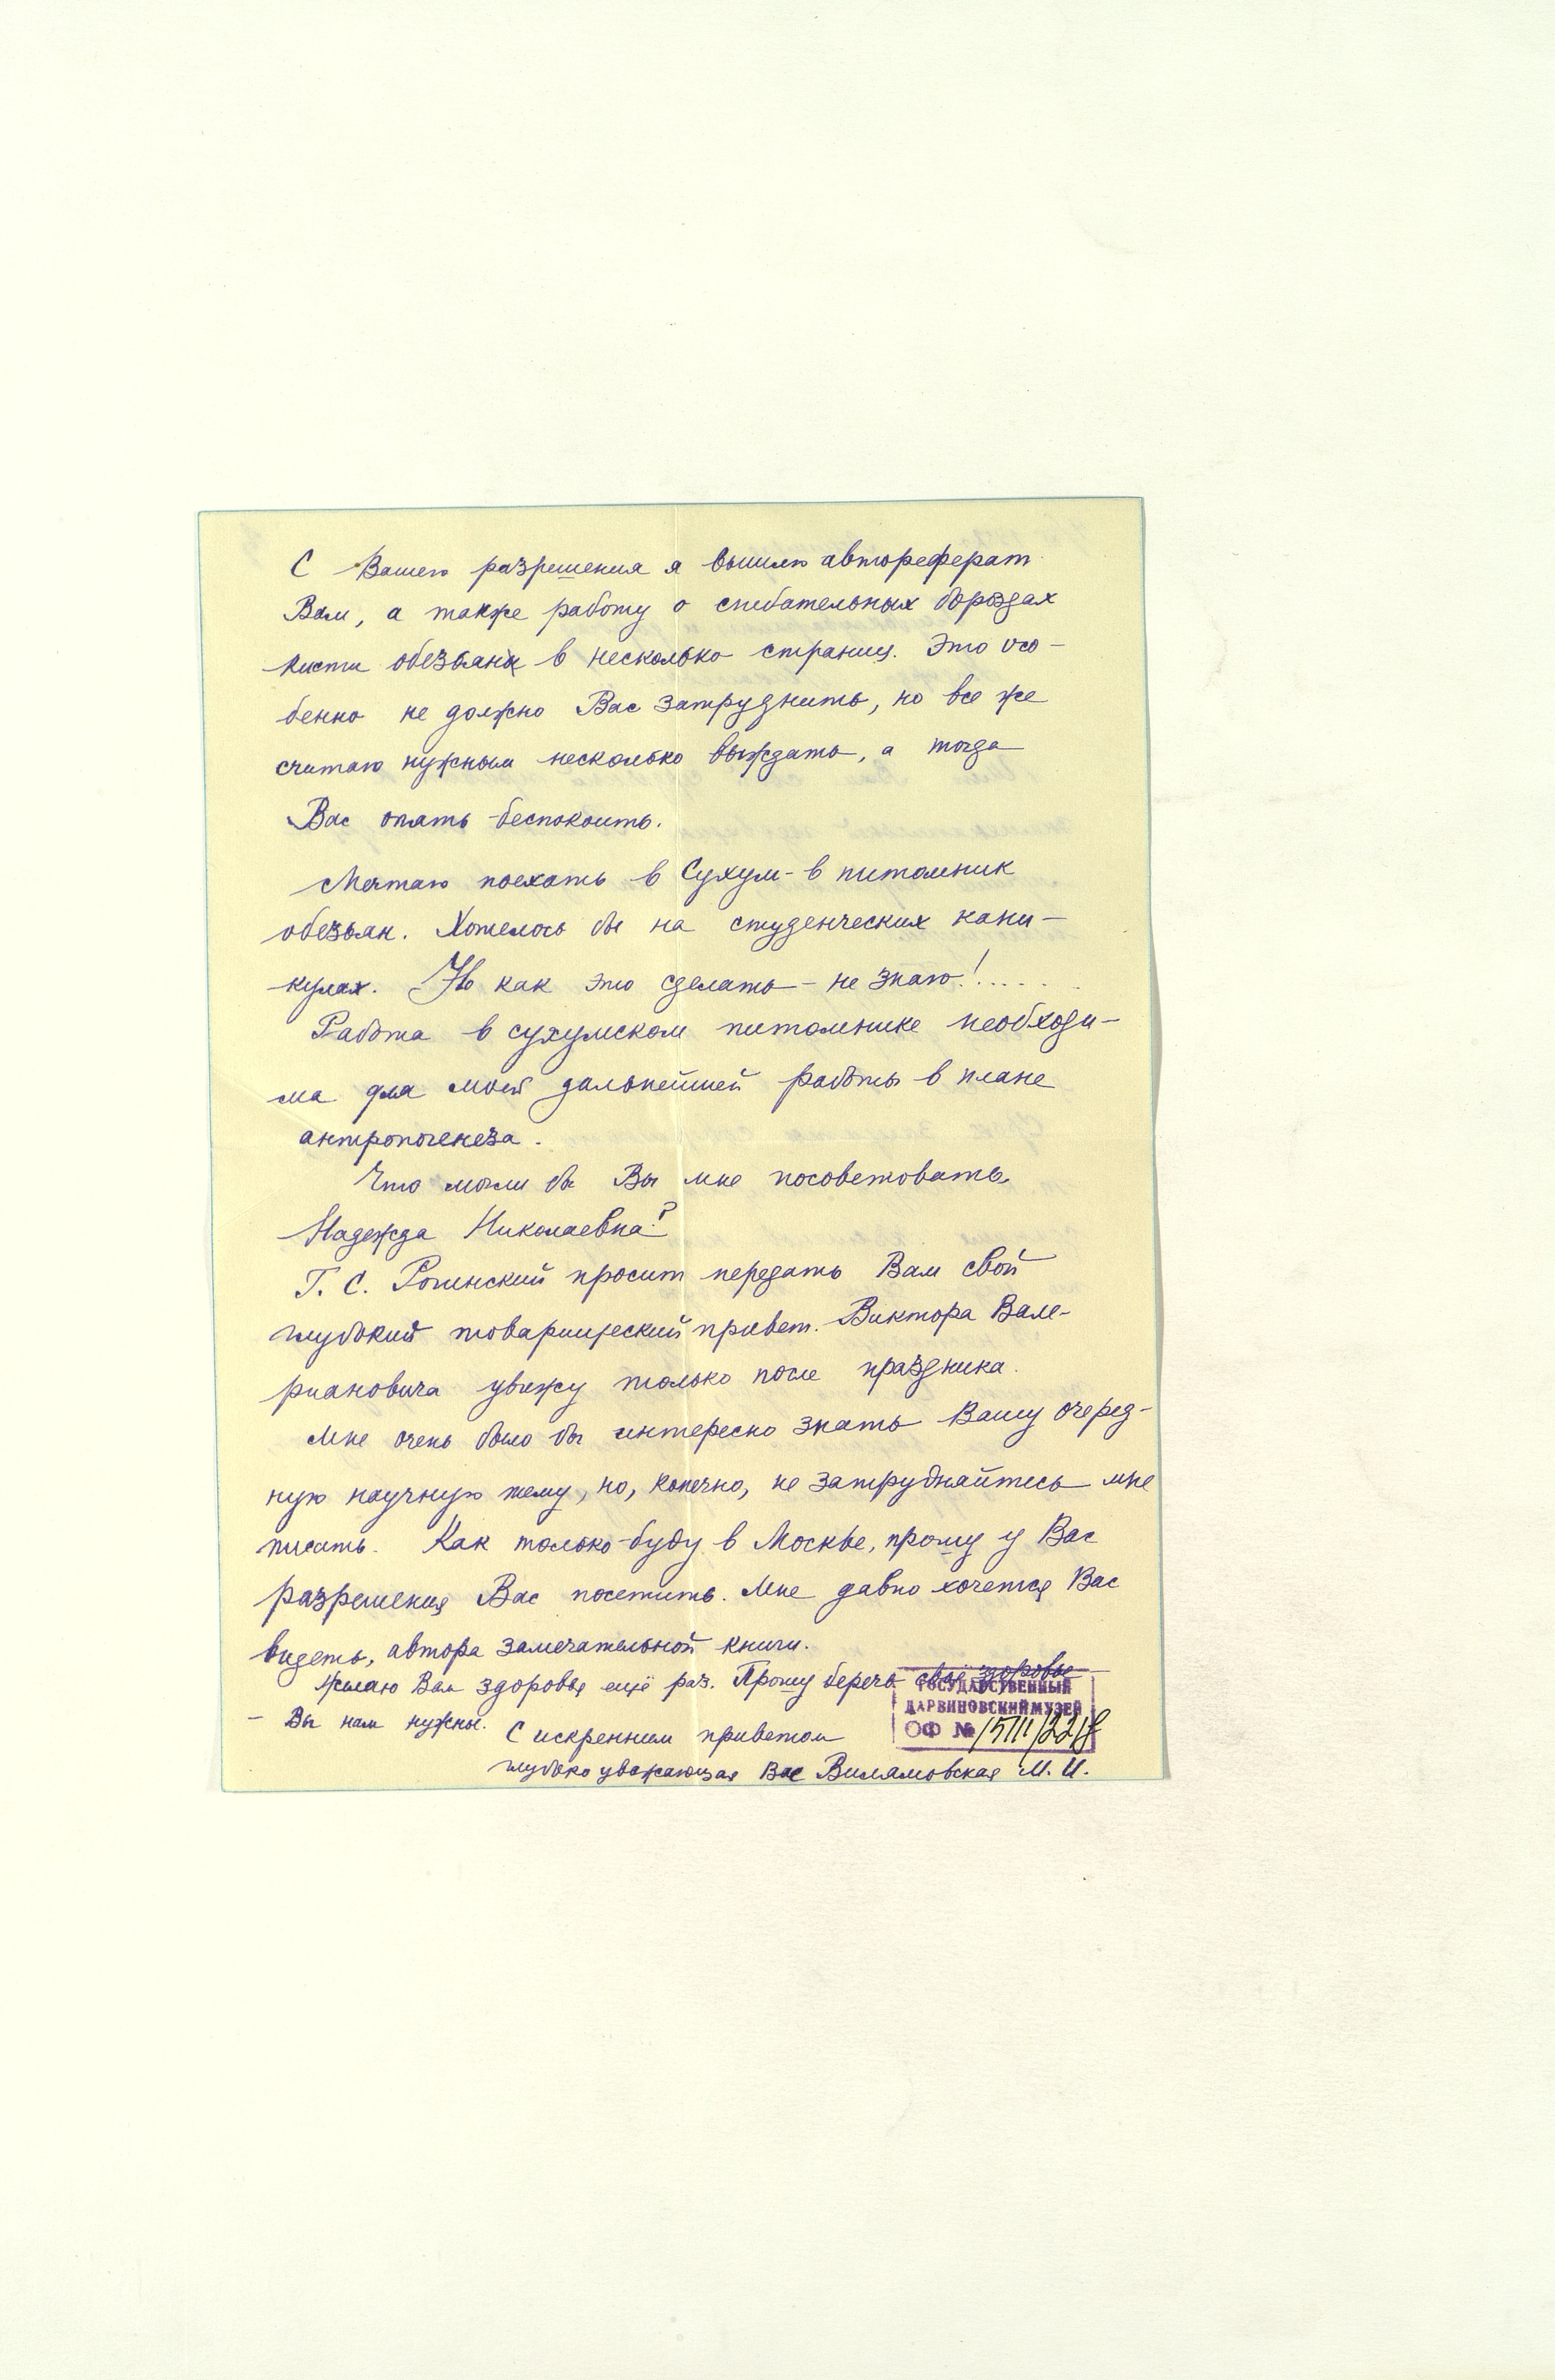 С Вашего разрешения я вышлю автореферат
Вам, а также работу о сгибательных бороздах
кисти обезьяны в несколько страниц. Это осо-
бенно не должно Вас затруднить, но все же
считаю нужным несколько выждать, а тогда
Вас опять беспокоить.
Мечтаю поехать в Сухум - в питомник
обезьян. Хотелось бы на студенческих кани-
кулах. Но как это сделать - не знаю!......
Работа в сухумском питомнике необходи-
ма для моей дальнейшей работы в плане
антропогенеза.
Что могли бы Вы мне посоветовать,
Надежда Николаевна?
Г. С. Рогинский просит передать Вам свой
глубокий товарищеский привет. Виктора Вале-
риановича увижу только после праздника.
Мне очень было бы интересно знать Вашу очеред-
ную научную тему, но, конечно, не затрудняйтесь мне
писать. Как только буду в Москве, прошу у Вас
разрешения Вас посетить. Мне давно хочется Вас
видеть, автора замечательной книги.
Желаю Вам здоровья ещё раз. Прошу беречь своё здоровье -
- Вы нам нужны. С искренним приветом
глубоко уважающая Вас Вилямовская М. И.
ГОСУДАРСТВЕННЫЙ
ДАРВИНОВСКИЙ МУЗЕЙ
ОФ №